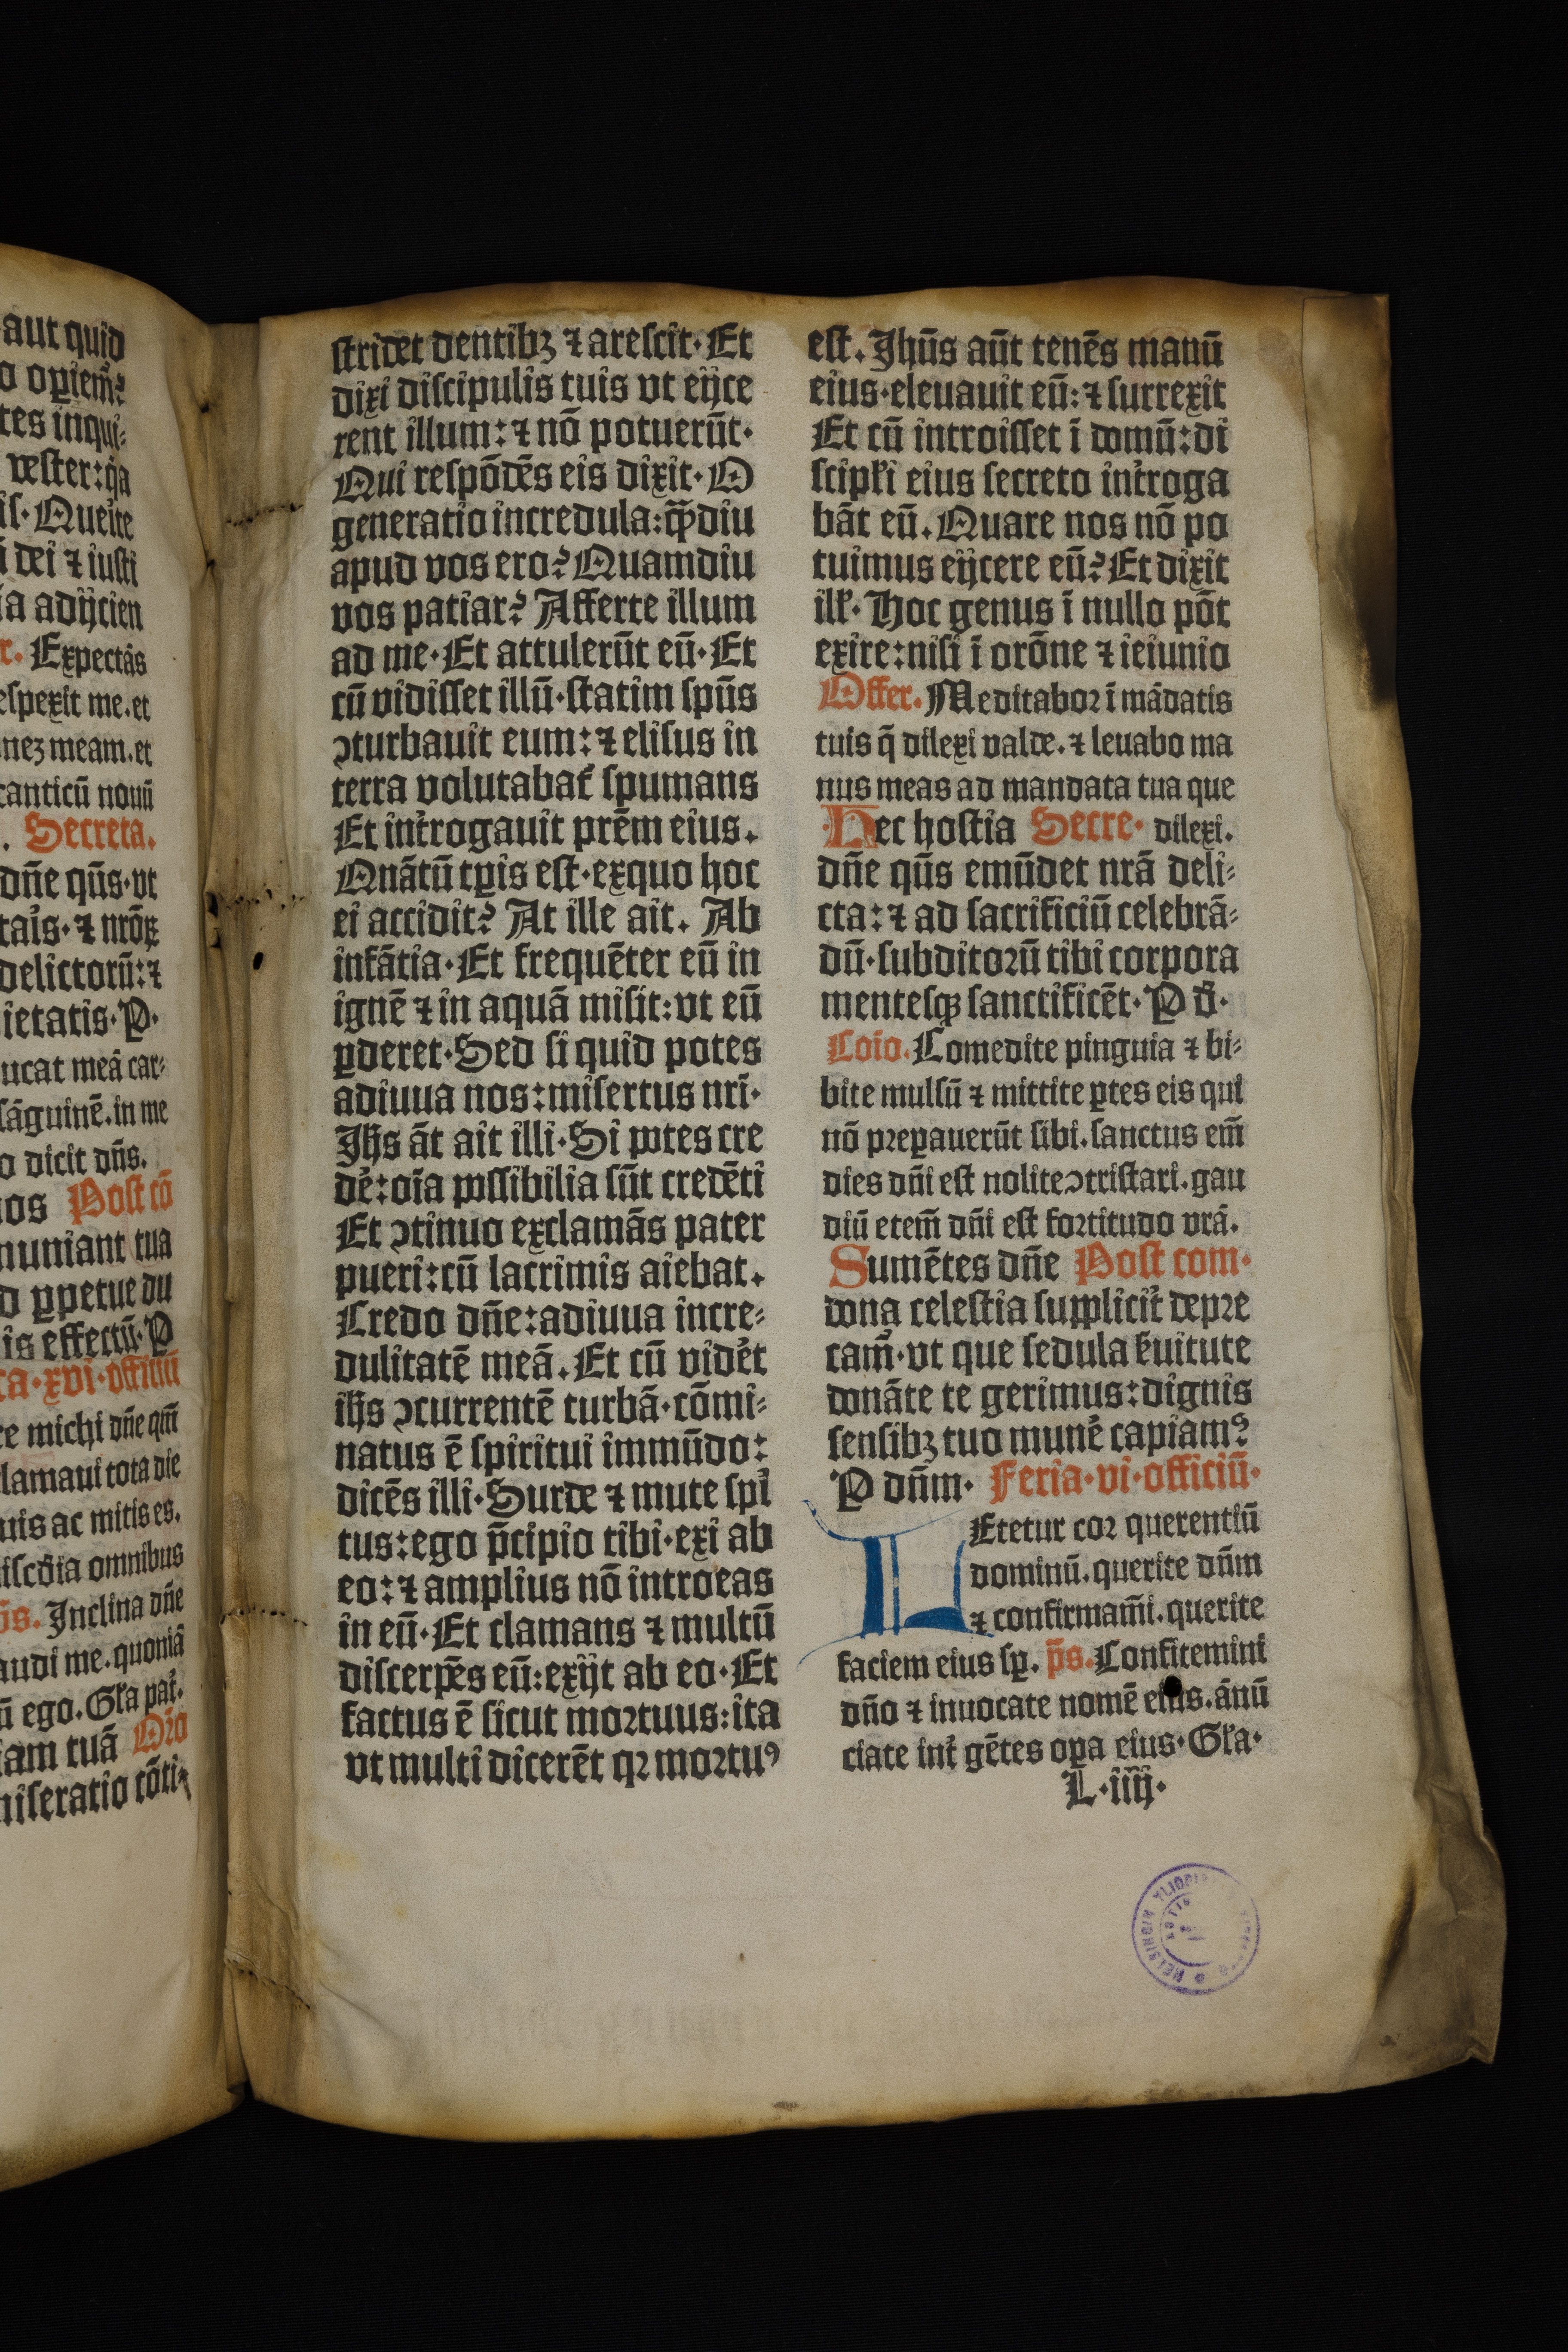 aut quid
o oꝑiem̃?
tes inqui⸗
vester:q̃a
is·Querite
i dei ⁊ iusti
ia adijcien
r. Expectãs
espexit me.et
nez meam.et
canticũ nouũ
. Secreta.
dñe q̃us·vt
tais·⁊ nr̃oꝝ
delictorũ:⁊
ietatis·P·
ucat meã car⸗
sãguinẽ.in me
o dicit dñs.
nos Post cõ
muniant tua
d ꝑpetue du
is effectũ·P
ca·xvi·officiũ
re michi dñe qm̃
clamaui tota die
uis ac mitis es.
iscd̃ia omnibus
p̃s. Inclina dñe
audi me.quoniã
ũ ego.Gl̃a pat̃.
iam tuã Or̃o
miseratio cõti⸗
stridet dentibꝫ ⁊ arescit·Et
dixi discipulis tuis vt eijce
rent illum:⁊ nõ potuerũt·
Qui respõdẽs eis dixit·O
generatio incredula:q̃diu
apud vos ero? Quamdiu
vos patiar? Afferte illum
ad me·Et attulerũt eũ·Et
cũ vidisset illũ·statim spũs
ↄturbauit eum:⁊ elisus in
terra volutabat̃ spumans
Et int̃rogauit pr̃em eius.
Qnãtũ tꝑis est·exquo hoc
ei accidit? At ille ait. Ab
infãtia·Et frequẽter eũ in
ignẽ ⁊ in aquã misit:vt eũ
ꝑderet·Sed si quid potes
adiuua nos:misertus nr̃i·
Jh̃s ãt ait illi·Si potes cre
de᷑:oĩa possibilia sũt credẽti
Et ↄtinuo exclamãs pater
pueri:cũ lacrimis aiebat.
Credo dñe:adiuua incre⸗
dulitatẽ meã.Et cũ vide᷑t
ih̃s ↄcurrentẽ turbã·cõmi⸗
natus ẽ spiritui immũdo:
dicẽs illi·Surde ⁊ mute spi᷑
tus:ego p̃cipio tibi·exi ab
eo:⁊ amplius nõ introeas
in eũ·Et clamans ⁊ multũ
discerpẽs eũ:exijt ab eo·Et
factus ẽ sicut mortuus:ita
vt multi dicerẽt qꝛ mortuꝰ
est. Jhũs aũt tenẽs manũ
eius·eleuauit eũ:⁊ surrexit
Et cũ introisset ĩ domũ:di
scipl̃i eius secreto int̃roga
bãt eũ.Quare nos nõ po
tuimus eijcere eũ?Et dixit
ill̃·Hoc genus ĩ nullo põt
exire:nisi ĩ orõne ⁊ ieiunio
Offer. Meditabor ĩ mãdatis
tuis q̃ dilexi valde.⁊ leuabo ma
nus meas ad mandata tua que
Hec hostia Secre· dilexi.
dñe q̃us emũdet nr̃ã deli⸗
cta:⁊ ad sacrificiũ celebrã⸗
dũ·subditorũ tibi corpora
mentesqꝫ sanctificẽt·P d̃·
Cõio. Comedite pinguia ⁊ bi⸗
bite mulsũ ⁊ mittite ꝑtes eis qui
nõ preꝑauerũt sibi.sanctus em̃
dies dñi est nolite ↄtristari.gau
diũ etem̃ dñi est fortitudo vr̃ã.
Sumẽtes dñe Post com·
dona celestia supplicit̃ depre
cam̃·vt que sedula s̃uitute
donãte te gerimus:dignis
sensibꝫ tuo mune᷑ capiamꝰ
P dñm· Feria·vi·officiũ·
LEtetur cor querentiũ
dominũ.querite dñm
⁊ confirmam̃i.querite
faciem eius sꝑ. p̃s. Confitemini
dño ⁊ inuocate nomẽ eius.ãnũ
ciate int̃ gẽtes oꝑa eius·Gl̃a·
L·iiij·
HELSINGIN YLIOPISTON